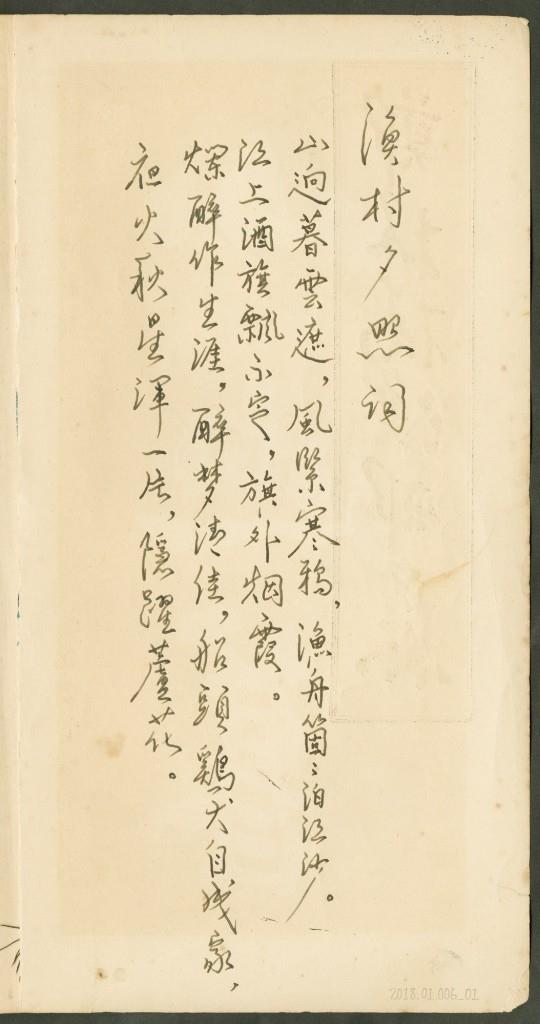 漁村夕照詞
山逈暮雲遮,風緊寒鴉,漁舟箇〻泊江沙。
江上酒旗飄不定,旗外烟霞。
爛醉作生涯,醉夢清佳,船頭鷄犬自成家,
夜火秋星渾一片,隱躍蘆花。
2018.01.006_01